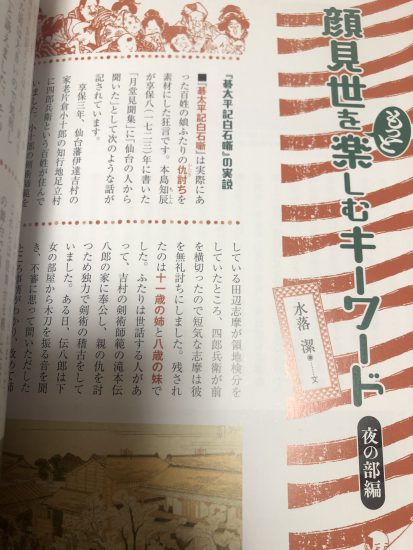 顔見世を
もっと
楽しむキーワード
夜の部編
水落 潔◉……文
『碁太平記白石噺』の実説
■『碁太平記白石噺』は実際にあ
った百姓の娘ふたりの仇討ちを
素材にした狂言です。本島知辰
が享保八(一七二三)年に書いた
『月堂見聞集』に「仙台の人から
聞いた」として次のような話が
記されています。
享保三年、仙台藩伊達吉村の
家老片倉小十郎の知行地足立村
に四郎兵衛という百姓が住んで
いました。小十郎の剣術指範を
している田辺志摩が領地検分を
していたところ、四郎兵衛が前
を横切ったので短気な志摩は彼
を無礼討ちにしました。残され
たのは十一歳の姉と八歳の妹で
した。ふたりは世話する人があ
って、吉村の剣術師範の滝本伝
八郎の家に奉公し、親の仇を討
つため独力で剣術の稽古をして
いました。ある日、伝八郎は下
女の部屋から木刀を振る音を聞
き、不審に思って問いただした